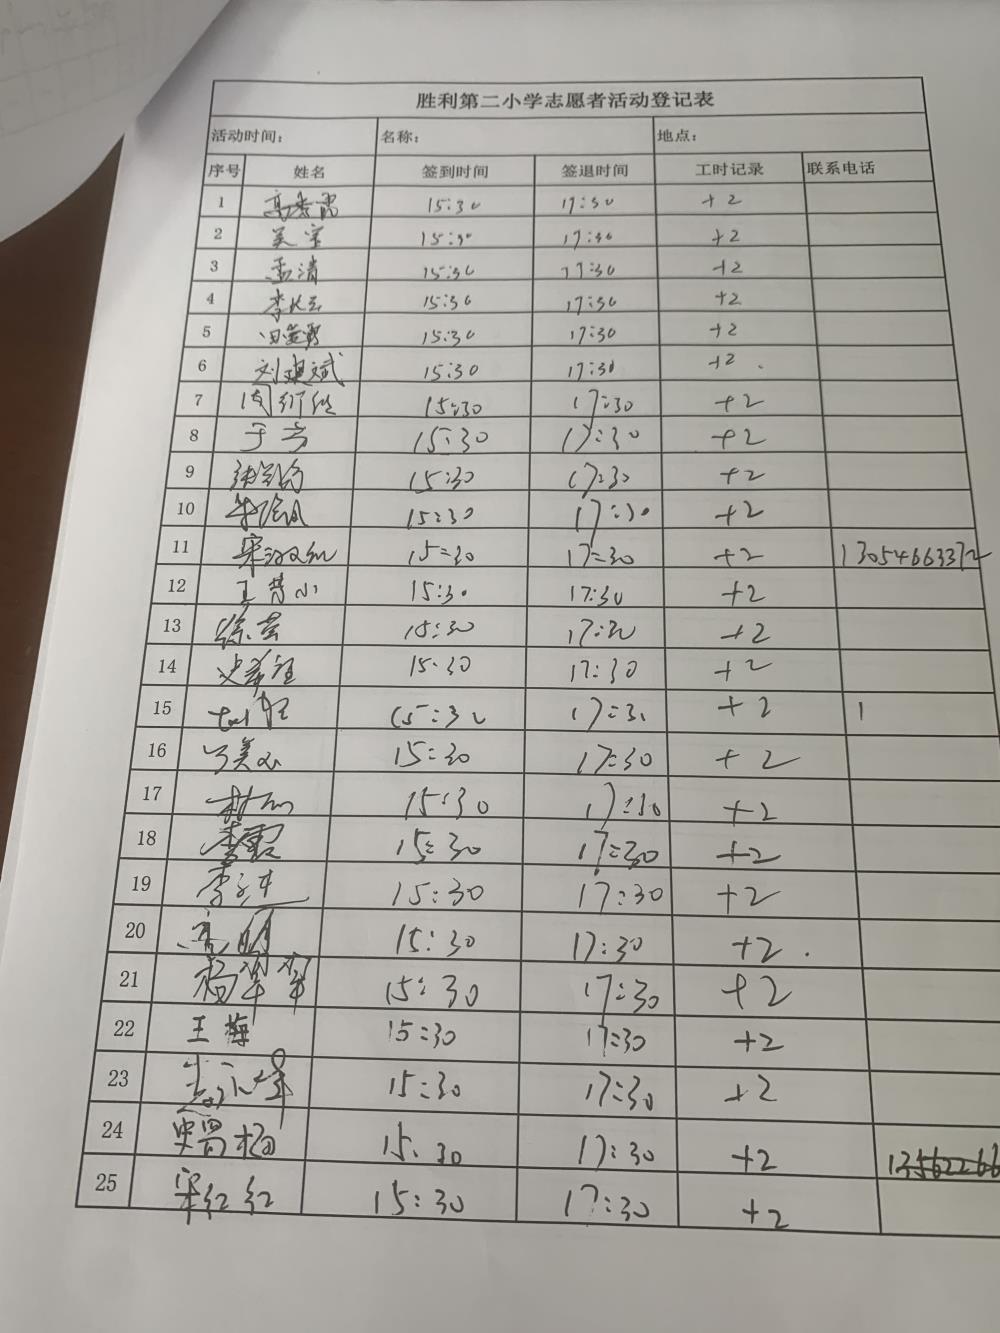 胜利第二小学志愿者活动登记表
活动时间： 名称： 地点：
序号 姓名 签到时间 签退时间 工时记录 联系电话
1 15:30 17:30 +2
2 15:30 17:30 +2
3 孟清 15:30 17:30 +2
4 15:30 17:30 +2
5 15:30 17:30 +2
6 刘建斌 15:30 17:30 +2
7 15:30 17:30 +2
8 于方 15:30 17:30 +2
9 15:30 17:30 +2
10 15:30 17:30 +2
11 15:30 17:30 +2 13054663372
12 15:30 17:30 +2
13 徐芸 15:30 17:30 +2
14 15:30 17:30 +2
15 15:30 17:30 +2 1
16 15:30 17:30 +2
17 15:30 17:30 +2
18 李霞 15:30 17:30 +2
19 15:30 17:30 +2
20 15:30 17:30 +2
21 杨翠翠 15:30 17:30 +2
22 王梅 15:30 17:30 +2
23 15:30 17:30 +2
24 15:30 17:30 +2
25 宋红红 15:30 17:30 +2